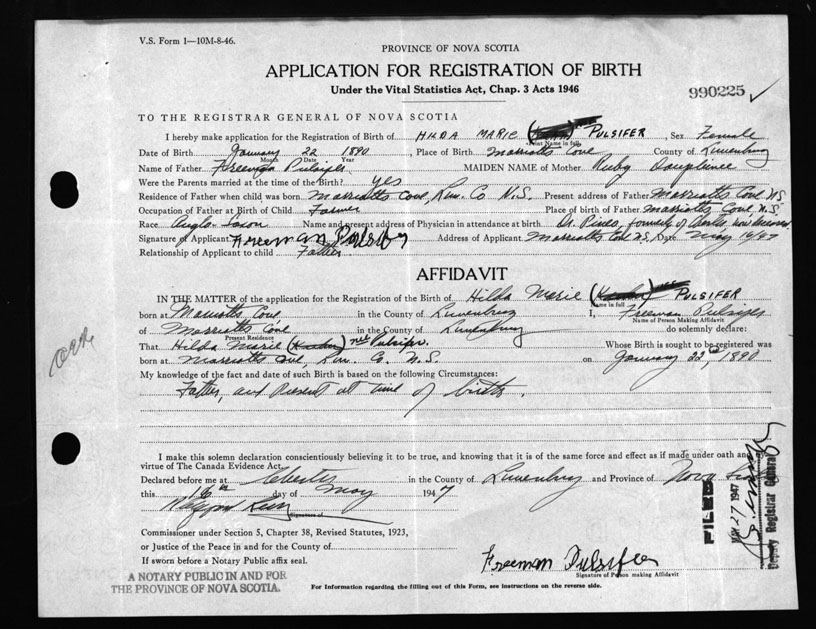 V.S. Form 1—10M-8-46.
PROVINCE OF NOVA SCOTIA
APPLICATION FOR REGISTRATION OF BIRTH
Under the Vital Statistics Act, Chap. 3 Acts 1946
990225 ✓
TO THE REGISTRAR GENERAL OF NOVA SCOTIA
I hereby make application for the Registration of Birth of HILDA MARIE PULSIFER Sex Female
Print Name in full
Date of Birth January 22 1890 Place of Birth Marriotts Cove County of Lunenburg
Month Date Year
Name of Father Freeman Pulsifer MAIDEN NAME of Mother Ruby
Were the Parents married at the time of the Birth? yes
Residence of Father when child was born Marriotts Cove, Lun. Co N.S. Present address of Father Marriotts Cove NS
Occupation of Father at Birth of Child Farmer Place of birth of Father Marriotts Cove, N.S.
Race Anglo Saxon Name and present address of Physician in attendance at birth Dr. formerly of now deceased
Signature of Applicant Freeman Pulsifer Address of Applicant Marriotts Cove N.S. Date May 16/47
Relationship of Applicant to child Father
AFFIDAVIT
IN THE MATTER of the application for the Registration of the Birth of Hilda Marie nee PULSIFER
Name in full
born at Marriotts Cove in the County of Lunenburg I, Freeman Pulsifer
Name of Person Making Affidavit
of Marriotts Cove in the County of Lunenburg do solemnly declare:
Present Residence
That Hilda Marie nee Pulsifer. Whose Birth is sought to be registered was
born at Marriotts Cove, Lun. Co. N.S. on January 22nd 1890
My knowledge of the fact and date of such Birth is based on the following Circumstances:
Father, and Present at time of birth.
I make this solemn declaration conscientiously believing it to be true, and knowing that it is of the same force and effect as if made under oath and by
virtue of The Canada Evidence Act.
Declared before me at Chester in the County of Lunenburg and Province of Nova Scotia
this 16th day of May 1947
Signature of
Commissioner under Section 5, Chapter 38, Revised Statutes, 1923,
or Justice of the Peace in and for the County of
If sworn before a Notary Public affix seal.
A NOTARY PUBLIC IN AND FOR
THE PROVINCE OF NOVA SCOTIA.
Freeman Pulsifer
Signature of Person making Affidavit
For Information regarding the filling out of this Form, see instructions on the reverse side.
FILED
MAY 27 1947
Deputy Registrar General